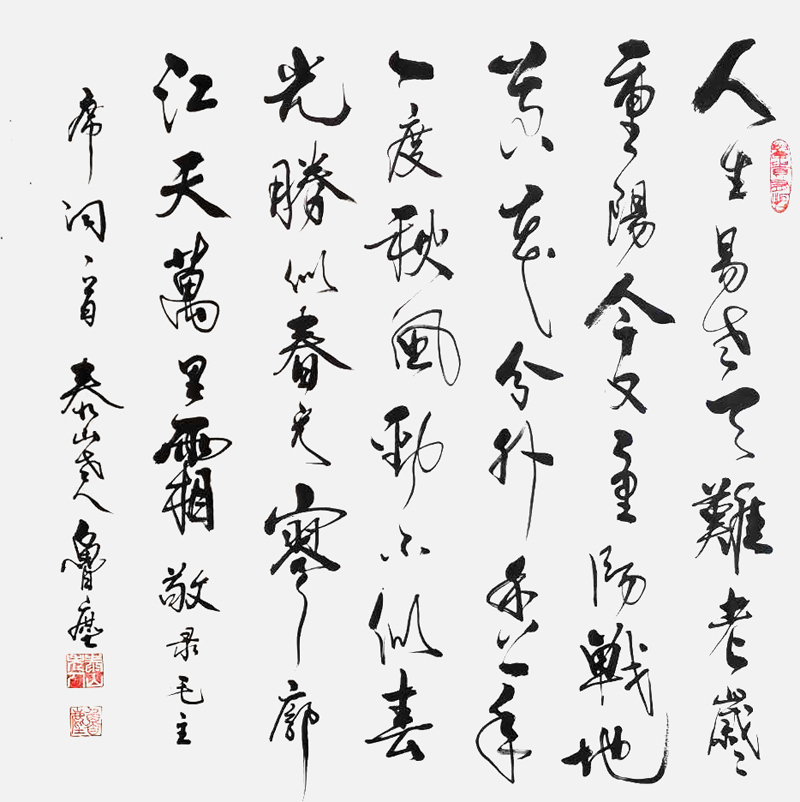 人生易老天難老歲〻
重陽今又重陽戰地
黄花分外香一年
一度秋風勁不似春
光勝似春光寥廓
江天萬里霜敬录毛主
席词一首 泰山老人魯塵